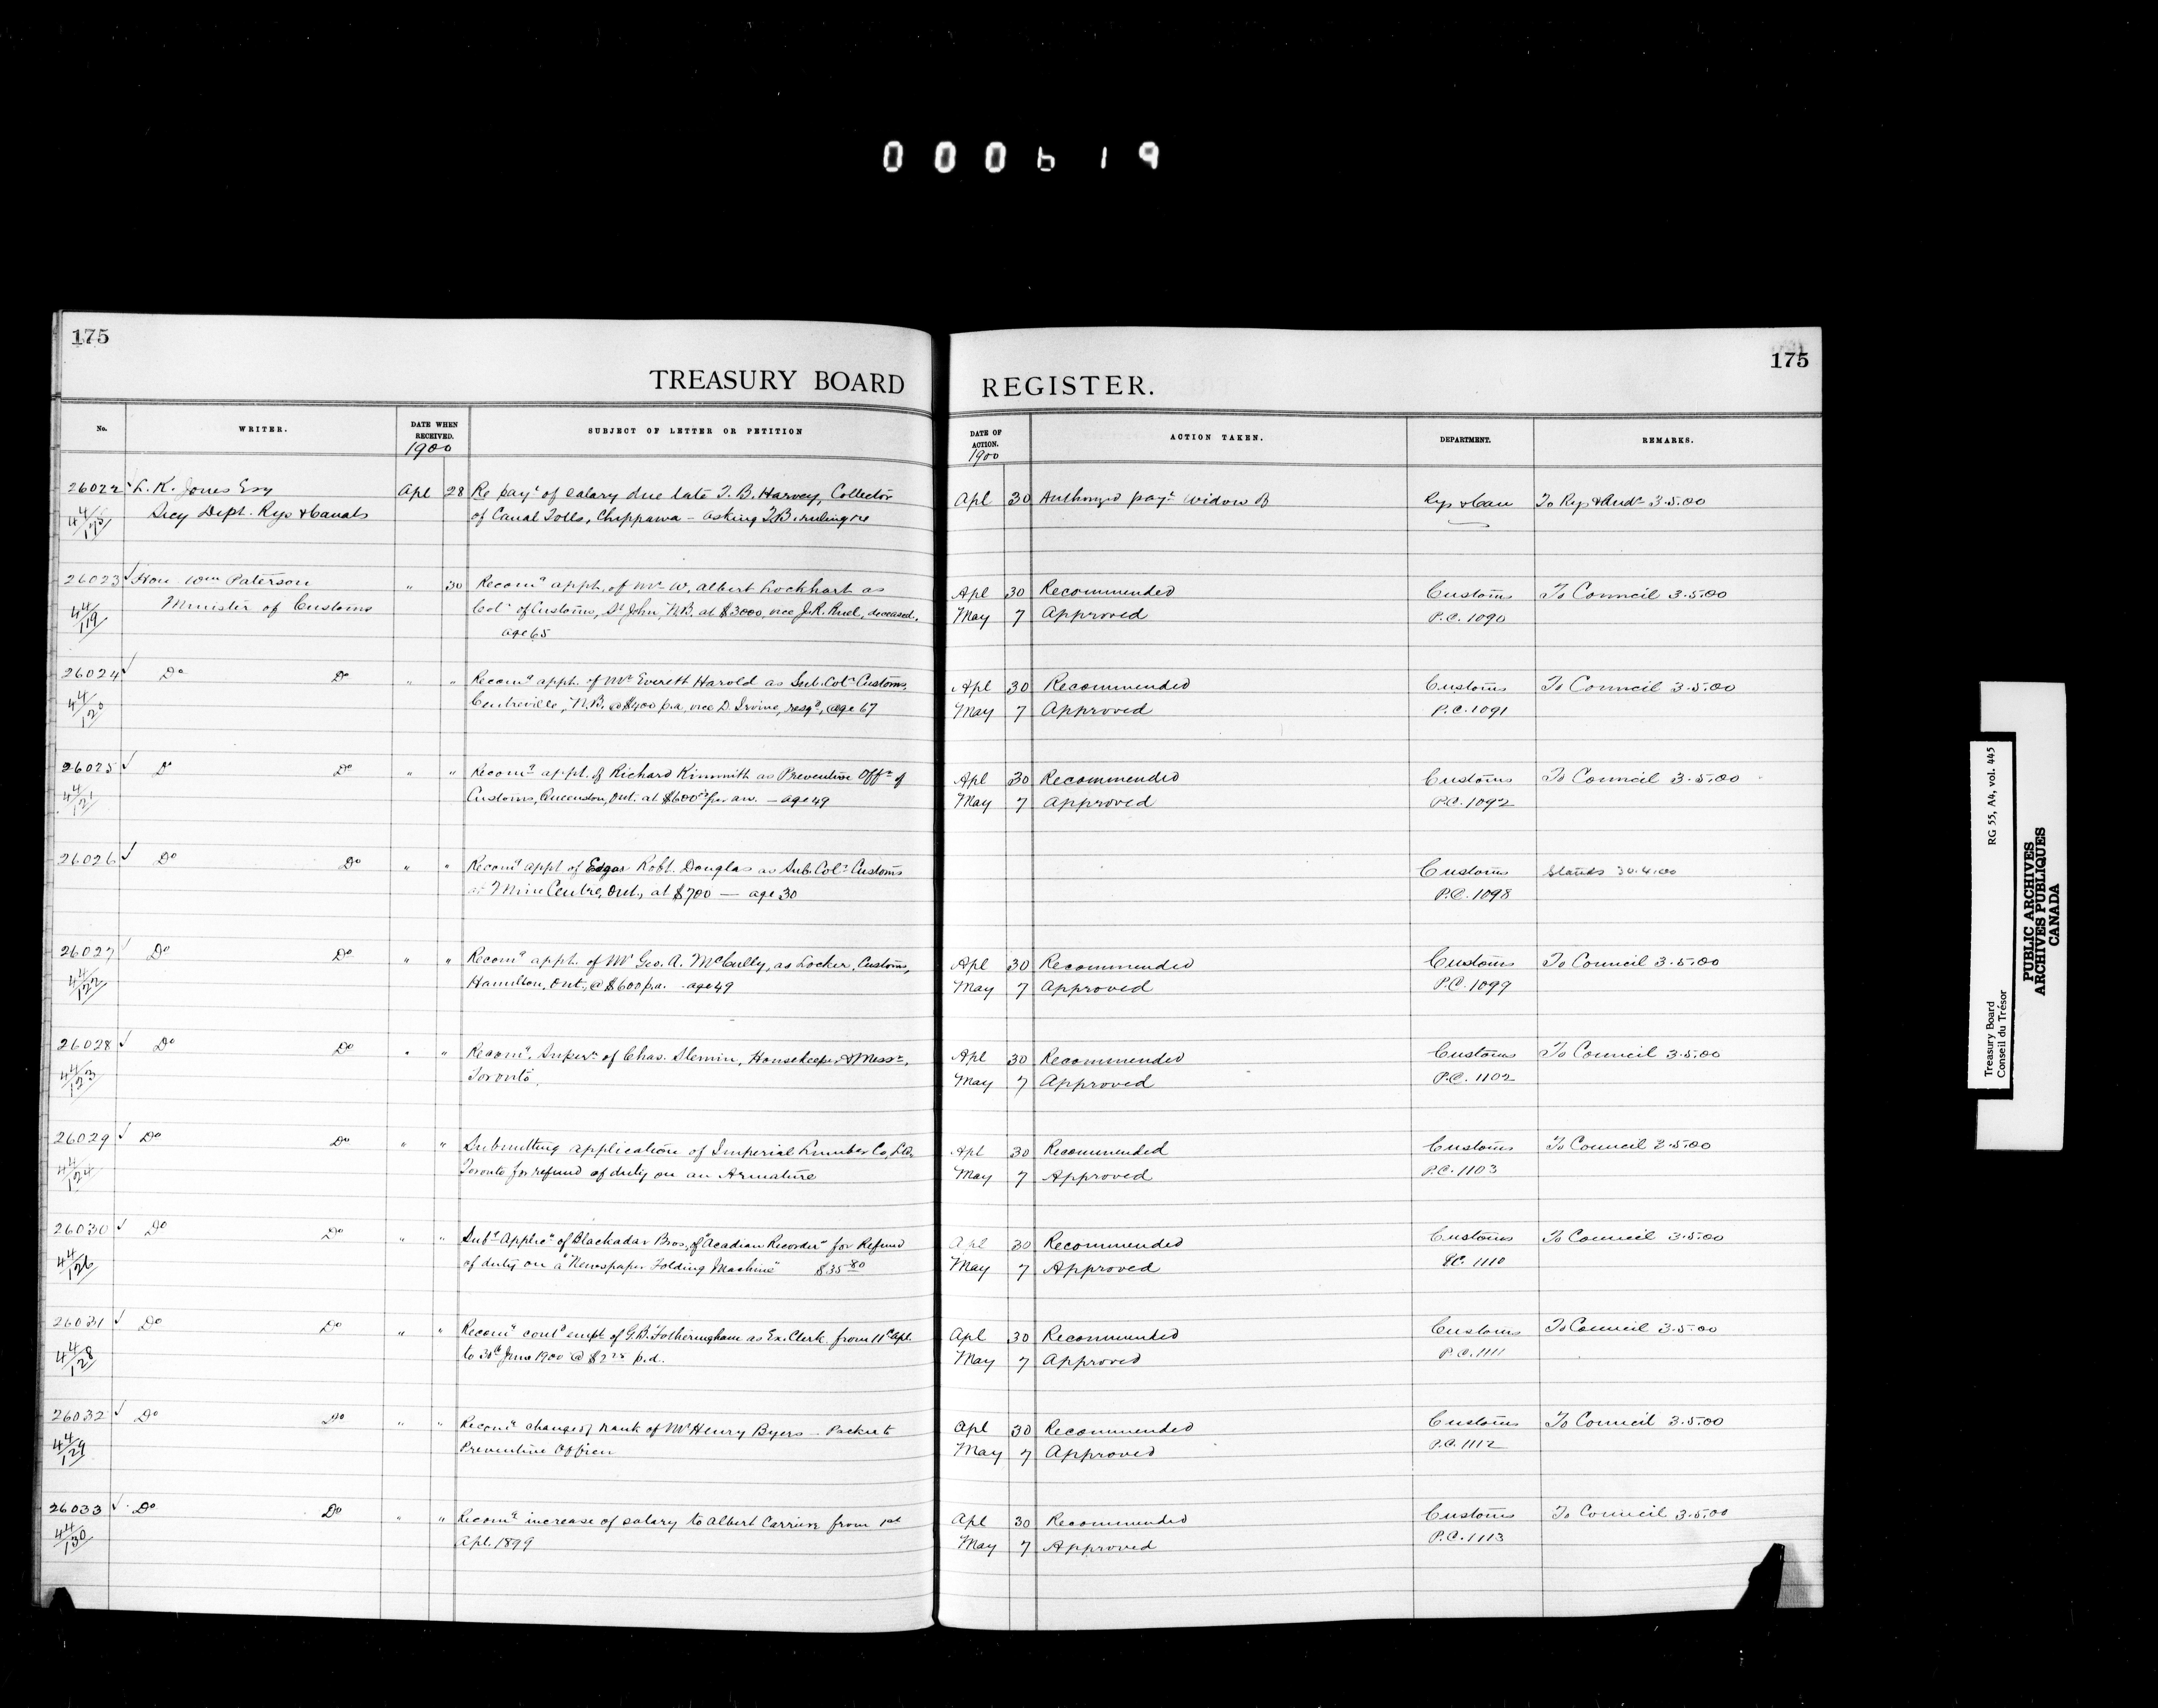 000619
175
TREASURY BOARD REGISTER.
175
No. WRITER. DATE WHEN RECEIVED. 1900 SUBJECT OF LETTER OR PETITION DATE OF ACTION. 1900 ACTION TAKEN. DEPARTMENT. REMARKS.
26022 L. K. Jones Esq Apl 28 Re payt of salary due late T. B. Harvey, Collector Apl 30 Authorized payt widow Rys & Can To Rys & Audr 3.5.00
44/ Secy Dept. Rys & Canals of Canal Tolls, Chippawa – asking T.B. ruling re
26023 ✓ Hon Wm Paterson " 30 Recomg appt. of Mr W. Albert Lockhart as Apl 30 Recommended Customs To Council 3.5.00
44/119 Minister of Customs Colr of Customs, St John, N.B. at $3000, vice J.R. Ruel, deceased, May 7 Approved P.C. 1090
age 65
26024 ✓ Do Do " " Recomg appt. of Mr Everett Harold as Sub. Colr Customs, Apl 30 Recommended Customs To Council 3.5.00
44/120 Centreville, N.B. @ $400 p.a. vice D. Irvine, resgd, age 67 May 7 Approved P.C. 1091
26025 ✓ Do Do " " Recomg appt. of Richard Kimmith as Preventive Offr of Apl 30 Recommended Customs To Council 3.5.00
44/121 Customs, Queenston, Ont. at $600 per ann. – age 49 May 7 Approved P.C. 1092
26026 ✓ Do Do " " Recomg appt of Edgar Robt. Douglas as Sub. Colr Customs Customs Stands 30.4.00
at Mine Centre, Ont., at $700 — age 30 P.C. 1098
26027 ✓ Do Do " " Recomg appt. of Mr Geo. A. McCully, as Locker, Customs, Apl 30 Recommended Customs To Council 3.5.00
44/122 Hamilton, Ont., @ $600 p.a. - age 49 May 7 Approved P.C. 1099
26028 ✓ Do Do " " Recomg Supern of Chas. Slemin, Housekeeper & Messr, Apl 30 Recommended Customs To Council 3.5.00
44/123 Toronto. May 7 Approved P.C. 1102
26029 ✓ Do Do " " Submitting application of Imperial Lumber Co, Ld. Apl 30 Recommended Customs To Council 2.5.00
44/124 Toronto for refund of duty on an Armature May 7 Approved P.C. 1103
26030 ✓ Do Do " " Subg Applicn of Blackadar Bros, of "Acadian Recorder" for Refund Apl 30 Recommended Customs To Council 3.5.00
44/126 of duty on a "Newspaper Folding Machine" $35.80 May 7 Approved P.C. 1110
26031 ✓ Do Do " " Recomg contd empt of G.B. Fotheringham as Ex. Clerk from 11th Apl. Apl 30 Recommended Customs To Council 3.5.00
44/128 to 30th June 1900 @ $2 p.d. May 7 Approved P.C. 1111
26032 ✓ Do Do " " Recomg change of rank of Mr Henry Byers – Packer to Apl 30 Recommended Customs To Council 3.5.00
44/129 Preventive Officer May 7 Approved P.C. 1112
26033 ✓ Do Do " " Recomg increase of salary to Albert Carrier from 1st Apl 30 Recommended Customs To Council 3.5.00
44/130 Apl. 1899 May 7 Approved P.C. 1113
Treasury Board RG 55, A4, vol. 445
Conseil du Trésor
PUBLIC ARCHIVES
ARCHIVES PUBLIQUES
CANADA